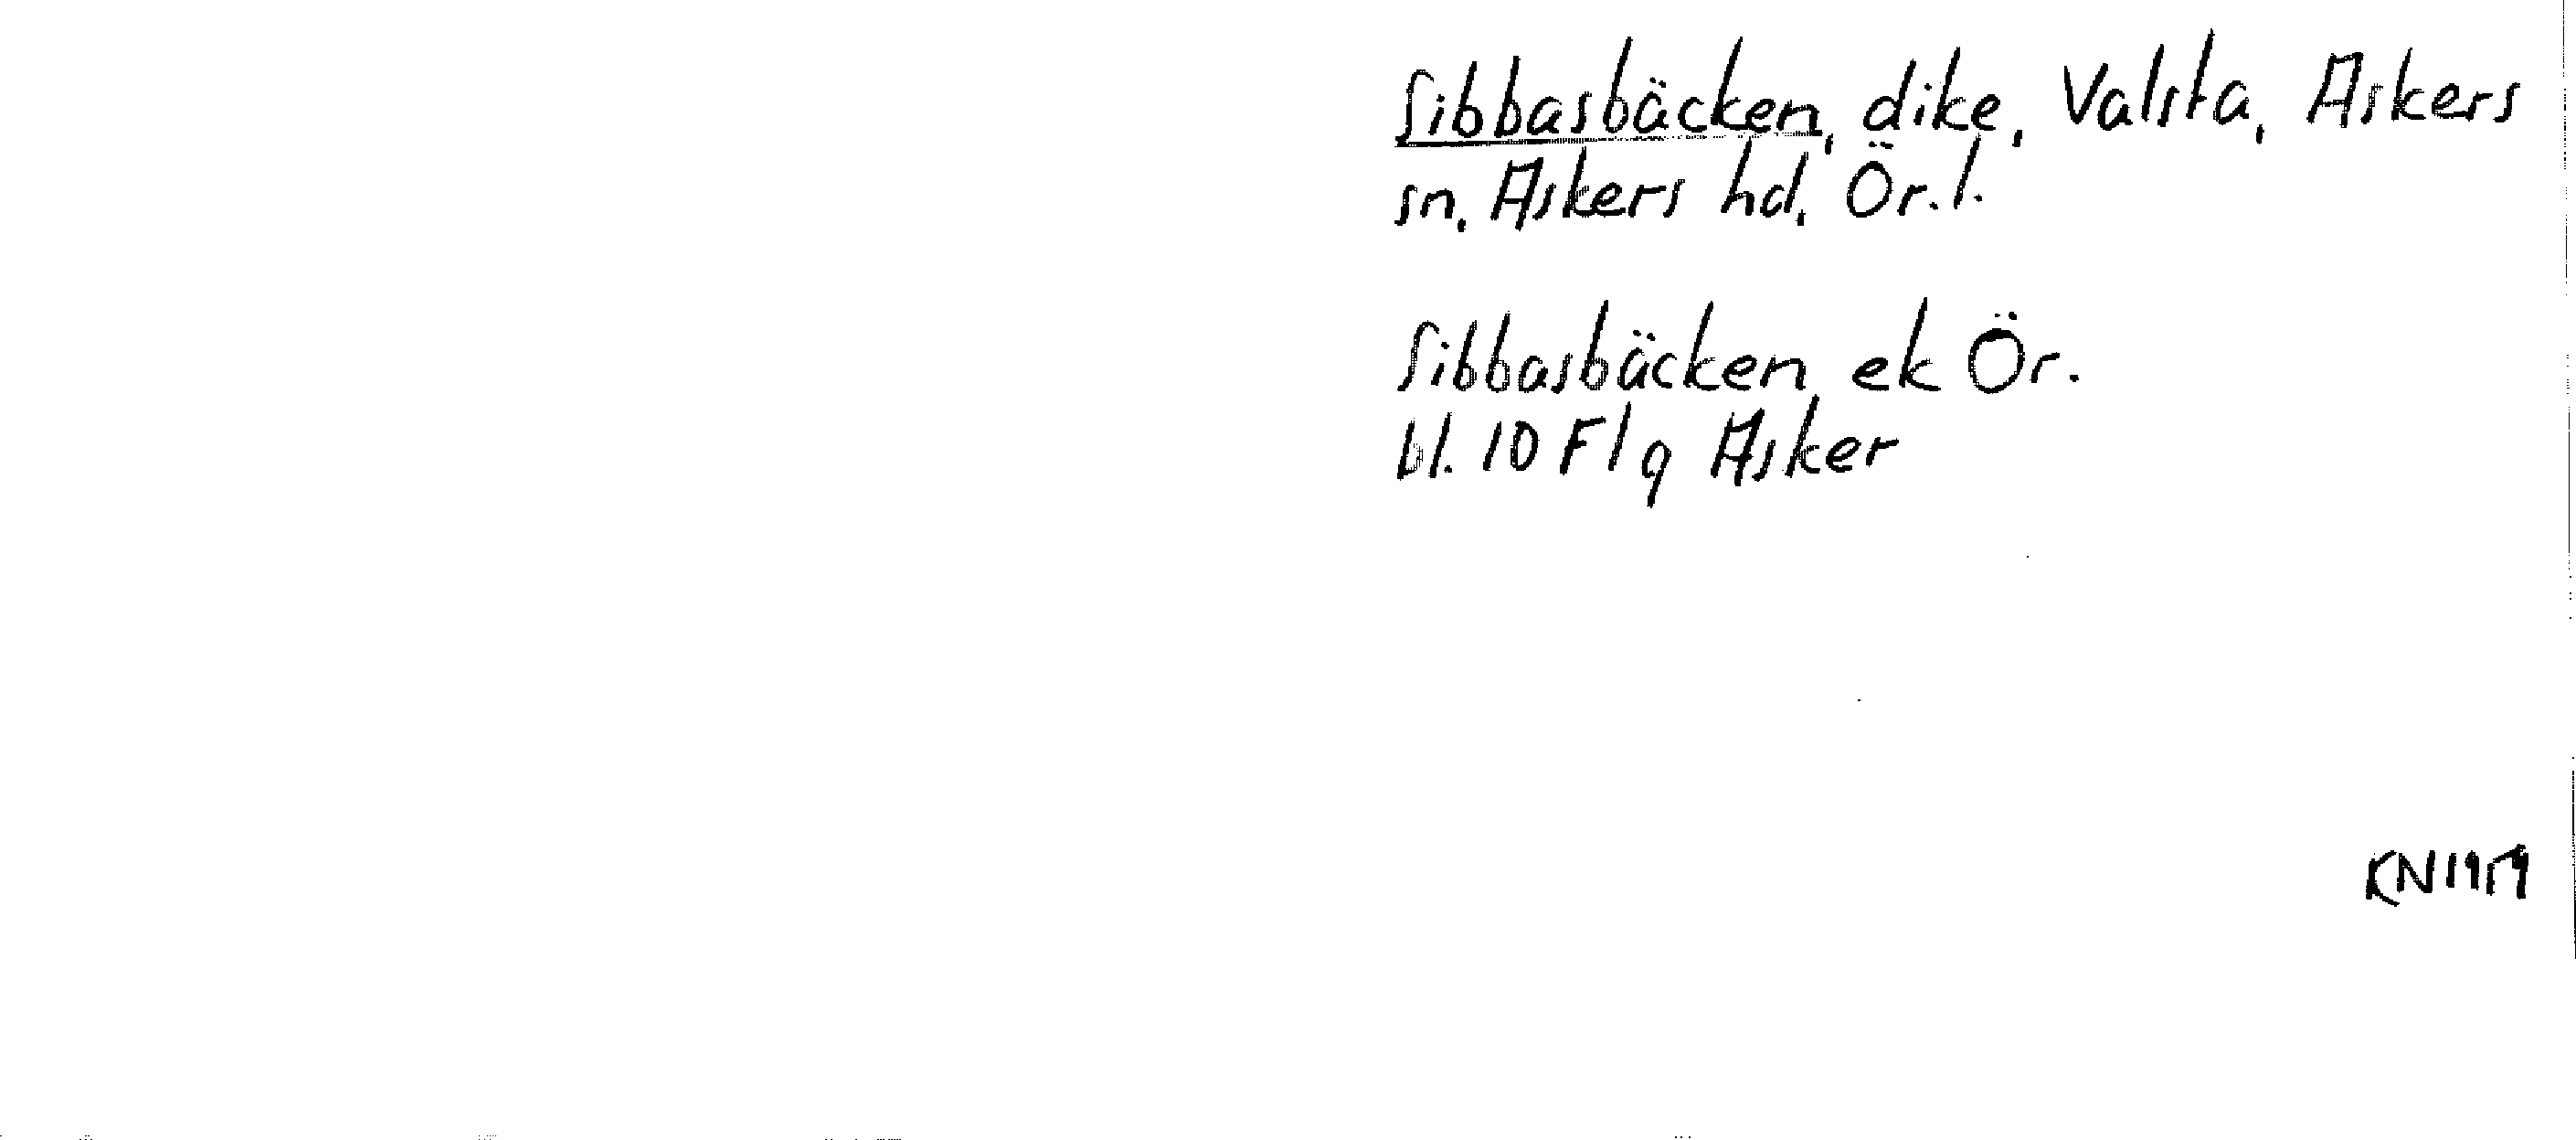 Sibbasbäcken, dike, Valsta, Askers
sn, Askers hd, Ör.l.
Sibbasbäcken ek Ör.
bl. 10 F1q Asker
KN1979